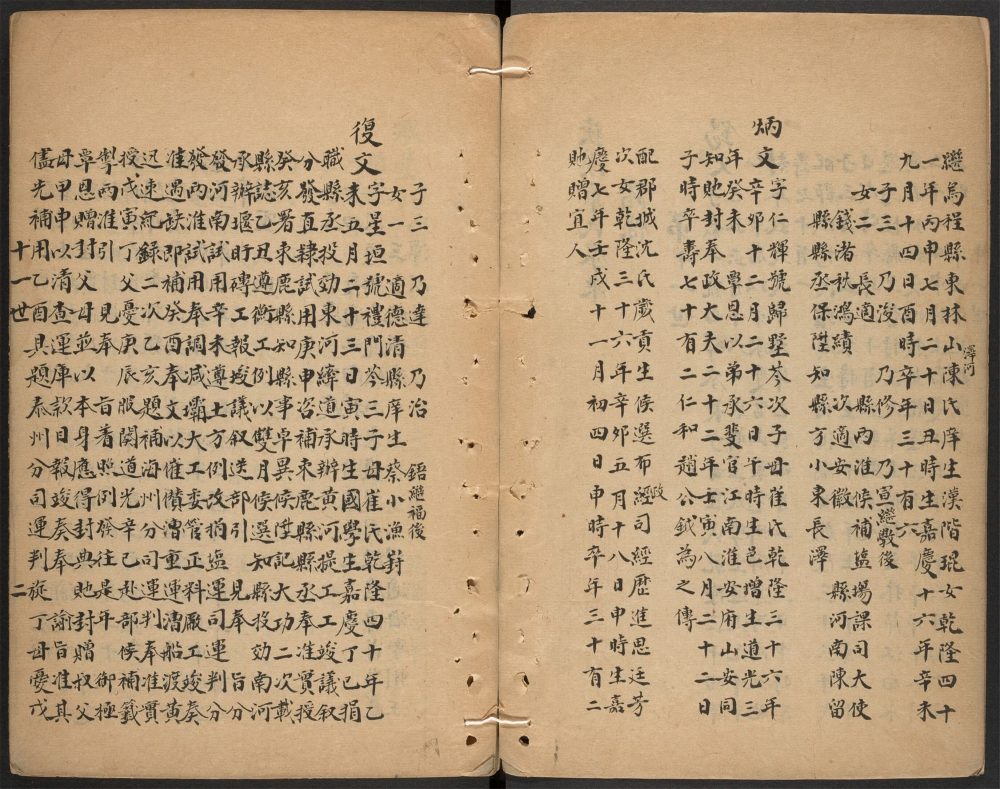 繼為程縣東林山陳氏庠生漢階琨女乾隆四十
一年丙申七月二十日丑時生嘉慶十六年辛未
九月十四日酉時卒年三十有六
子三 乃浚 乃修 乃宣繼斅後
女二 長適 縣丙淮候補鹽場課司大使
錢渚秋鴻績 次適安徽 縣河南陳留
縣縣丞保陞知縣方小東長澤
炳文 字仁輝號歸墅芩次子母崔氏乾隆三十六年
辛卯十二月二十六日午時生邑增生道光三
年癸未 覃恩以弟承斐官江南淮安府山安同
知貤封奉政大夫二十二年壬寅八月二十二日
子時卒壽七十有二仁和趙公鉞為之傳
配郡城沈氏歲貢生候選布政經司經歷進思廷芳
次女乾隆三十六年辛卯五月十八日申時生嘉
慶七年壬戌十一月初四日申時卒年三十有二
貤贈宜人
子三 乃達 乃治 鋙繼福後
女一 適德清縣庠生蔡小漁
復文 字星垣號禮門芩三子母崔氏乾隆四十年乙
未五月二十三日寅時生國學生嘉慶丁巳捐
職縣丞投効東河道承辦黃河搶工工竣議叙
分發直隸試用庚申咨補束鹿縣縣丞奉准實授
癸亥署束鹿縣知縣事卓異候陞記大功二次載
縣誌乙丑遵衡工例以雙月候選知縣投効南河
承辦堰盱磚工報竣議叙送部引 見奉 旨分
發河南試用辛未遵土方例改捐鹽運司運判分
發兩淮試用奉調減壩大工委管正料廠工竣奏
准遇缺即補癸酉奉文以催儹漕重運漕船渡黃
迅速紀錄二次乙亥題補海州分司運判奉准實
授戊寅丁父憂庚辰服闋道光辛巳赴部候補籤
掣兩淮引 見奉 旨着照例發往是年 御極
覃恩贈封父母並以本身應得封典貤封贈叔父
母甲申以清查運庫款目報竣奏奉 諭旨准其
儘先補用乙酉具題泰州分司運判旋丁母憂戊
十一世 二